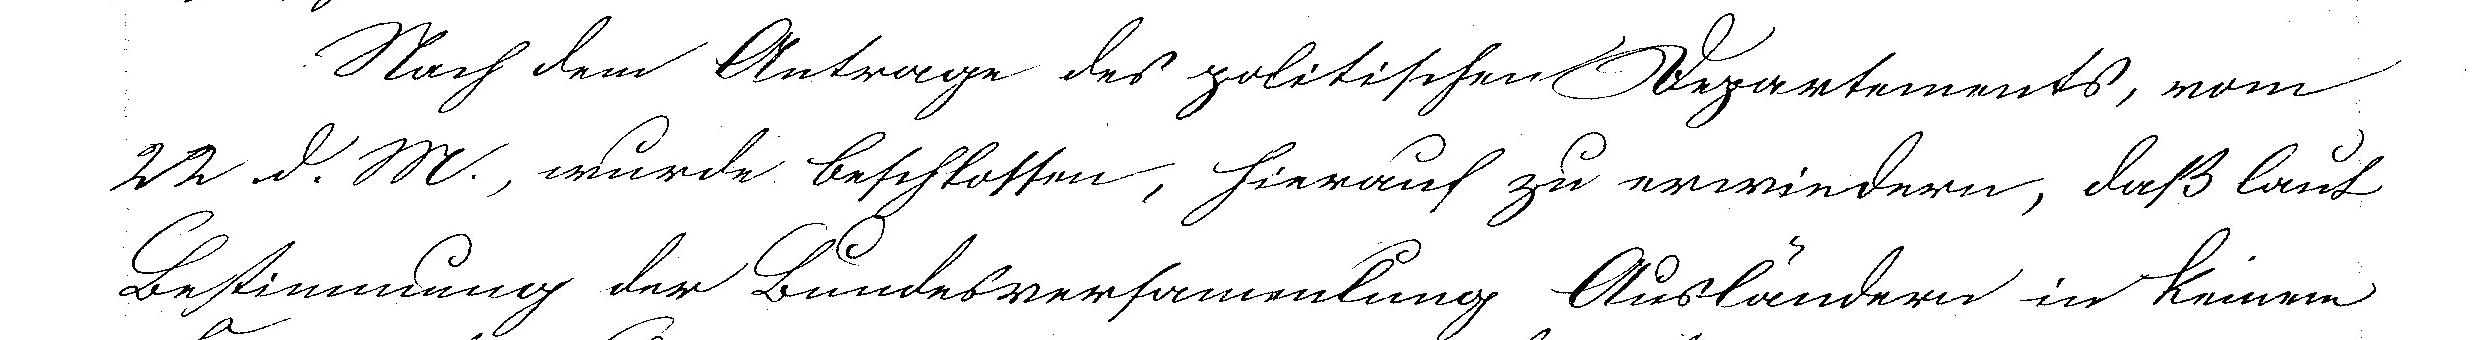 Nach dem Antrage des politischen Departements, vom
22 d. M., wurde beschlossen, hierauf zu erwiedern, daß laut
Bestimmung der Bundesversammlung Ausländern in keinem